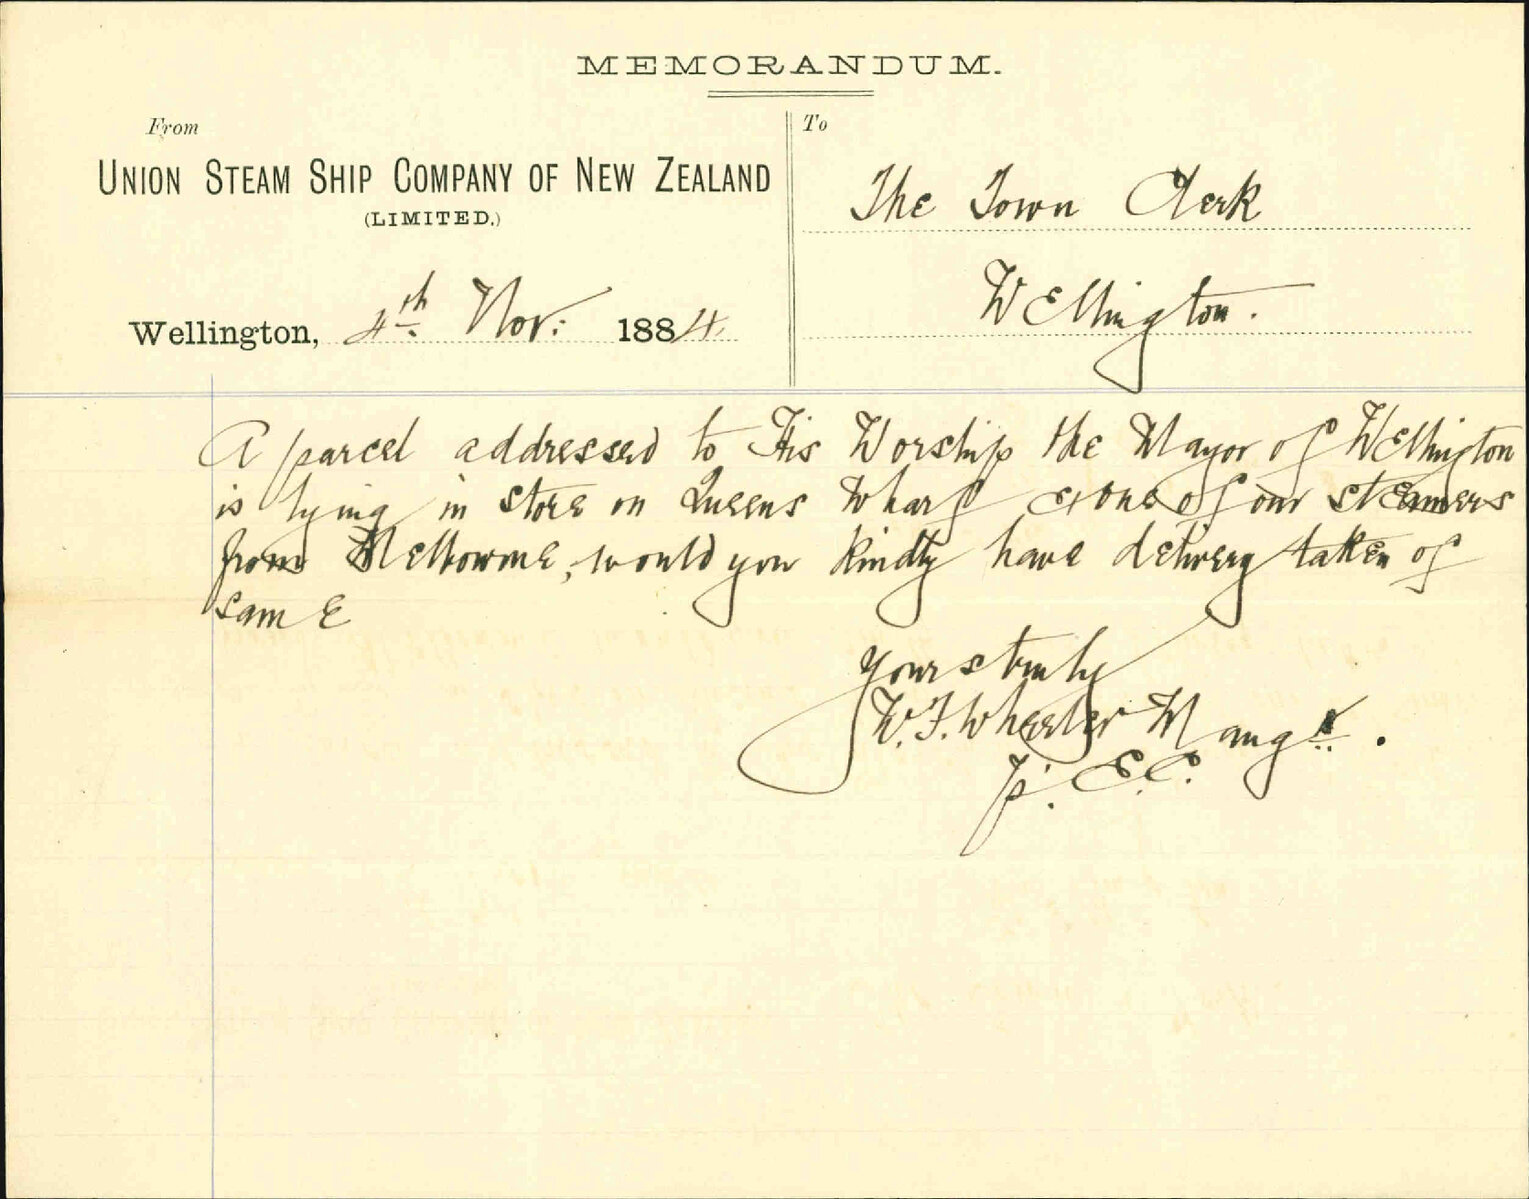 MEMORANDUM.
From
UNION STEAM SHIP COMPANY OF NEW ZEALAND
(LIMITED.)
Wellington, 4th Nov: 1884
To
The Town Clerk
Wellington.
A parcel addressed to His Worship the Mayor of Wellington
is lying in store on Queens Wharf ex one of our steamers
from Melbourne, would you kindly have delivery taken of
same
Yours truly
W.F. Wheeler Mangr.
p. E.C.